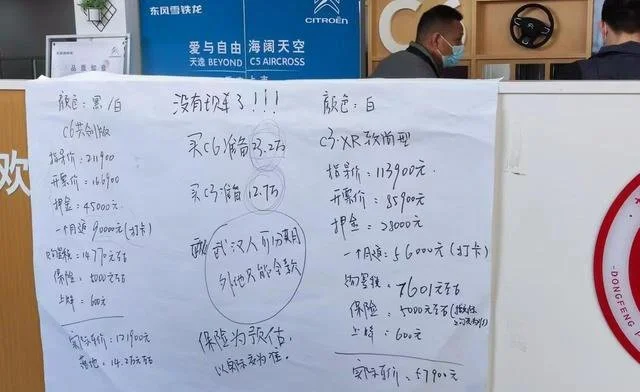 东风雪铁龙
CITROËN
爱与自由 海阔天空
天逸 BEYOND C5 AIRCROSS
欢
颜色:黑/白
C6共创版
指导价:211900
开票价:166900
押金:45000元
一个月返90000元(打卡)
购置税:14770元左右
保险:5000元左右
上牌:600元
实际车价:121900元
落地:14.2万元左右
没有现车了!!!
买C6准备23.2万
买C3准备12.7万
武汉人可分期
外地只能全款
保险为预估,
以实际为准.
颜色:白
C3-XR致尚型
指导价:113900元
开票价:85900元
押金:28000元
一个月返:56000元(打卡)
购置税:7601元左右
保险:5000元左右
上牌:600元
实际车价:57900元
DONGFENG